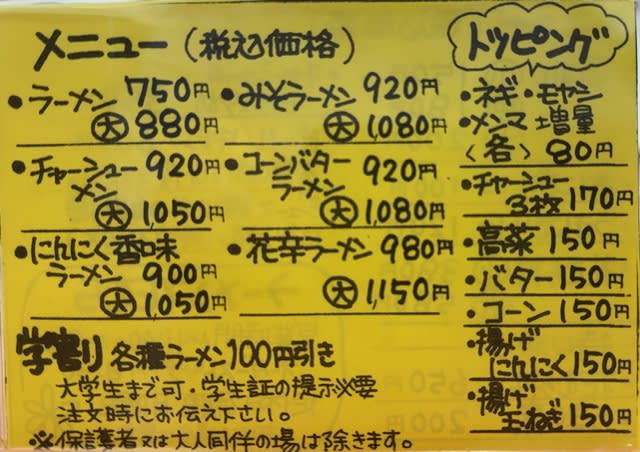 メニュー(税込価格)
・ラーメン 750円
大 880円
・みそラーメン 920円
大 1,080円
・チャーシュー 920円
メン
大 1,050円
・コーンバター 920円
ラーメン
大 1,080円
・にんにく香味
ラーメン 900円
大 1,050円
・花辛ラーメン 980円
大 1,150円
学割り 各種ラーメン100円引き
大学生まで可・学生証の提示必要
注文時にお伝え下さい。
※保護者又は大人同伴の場は除きます。
トッピング
・ネギ・モヤシ
・メンマ 増量
〈各〉 80円
・チャーシュー
3枚 170円
・高菜 150円
・バター 150円
・コーン 150円
・揚げ
にんにく 150円
・揚げ
玉ねぎ 150円